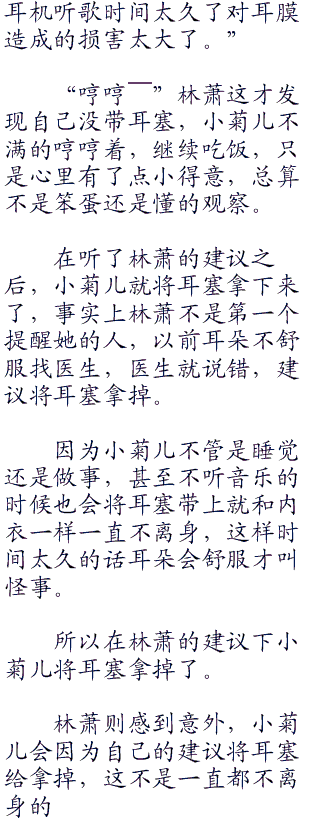 耳机听歌时间太久了对耳膜
造成的损害太大了。”
“哼哼——”林萧这才发
现自己没带耳塞，小菊儿不
满的哼哼着，继续吃饭，只
是心里有了点小得意，总算
不是笨蛋还是懂的观察。
在听了林萧的建议之
后，小菊儿就将耳塞拿下来
了，事实上林萧不是第一个
提醒她的人，以前耳朵不舒
服找医生，医生就说错，建
议将耳塞拿掉。
因为小菊儿不管是睡觉
还是做事，甚至不听音乐的
时候也会将耳塞带上就和内
衣一样一直不离身，这样时
间太久的话耳朵会舒服才叫
怪事。
所以在林萧的建议下小
菊儿将耳塞拿掉了。
林萧则感到意外，小菊
儿会因为自己的建议将耳塞
给拿掉，这不是一直都不离
身的